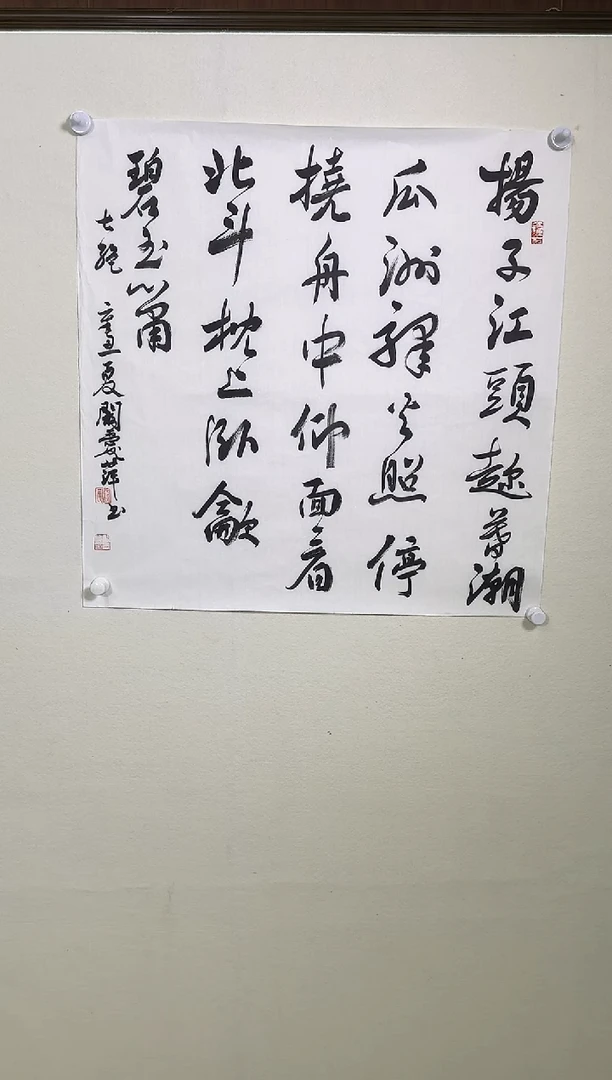 揚子江頭趁暮潮
瓜洲驛火照停
橈舟中仰面看
北斗枕上臥龡
碧玉簫
七絕 辛丑夏關愛萍书